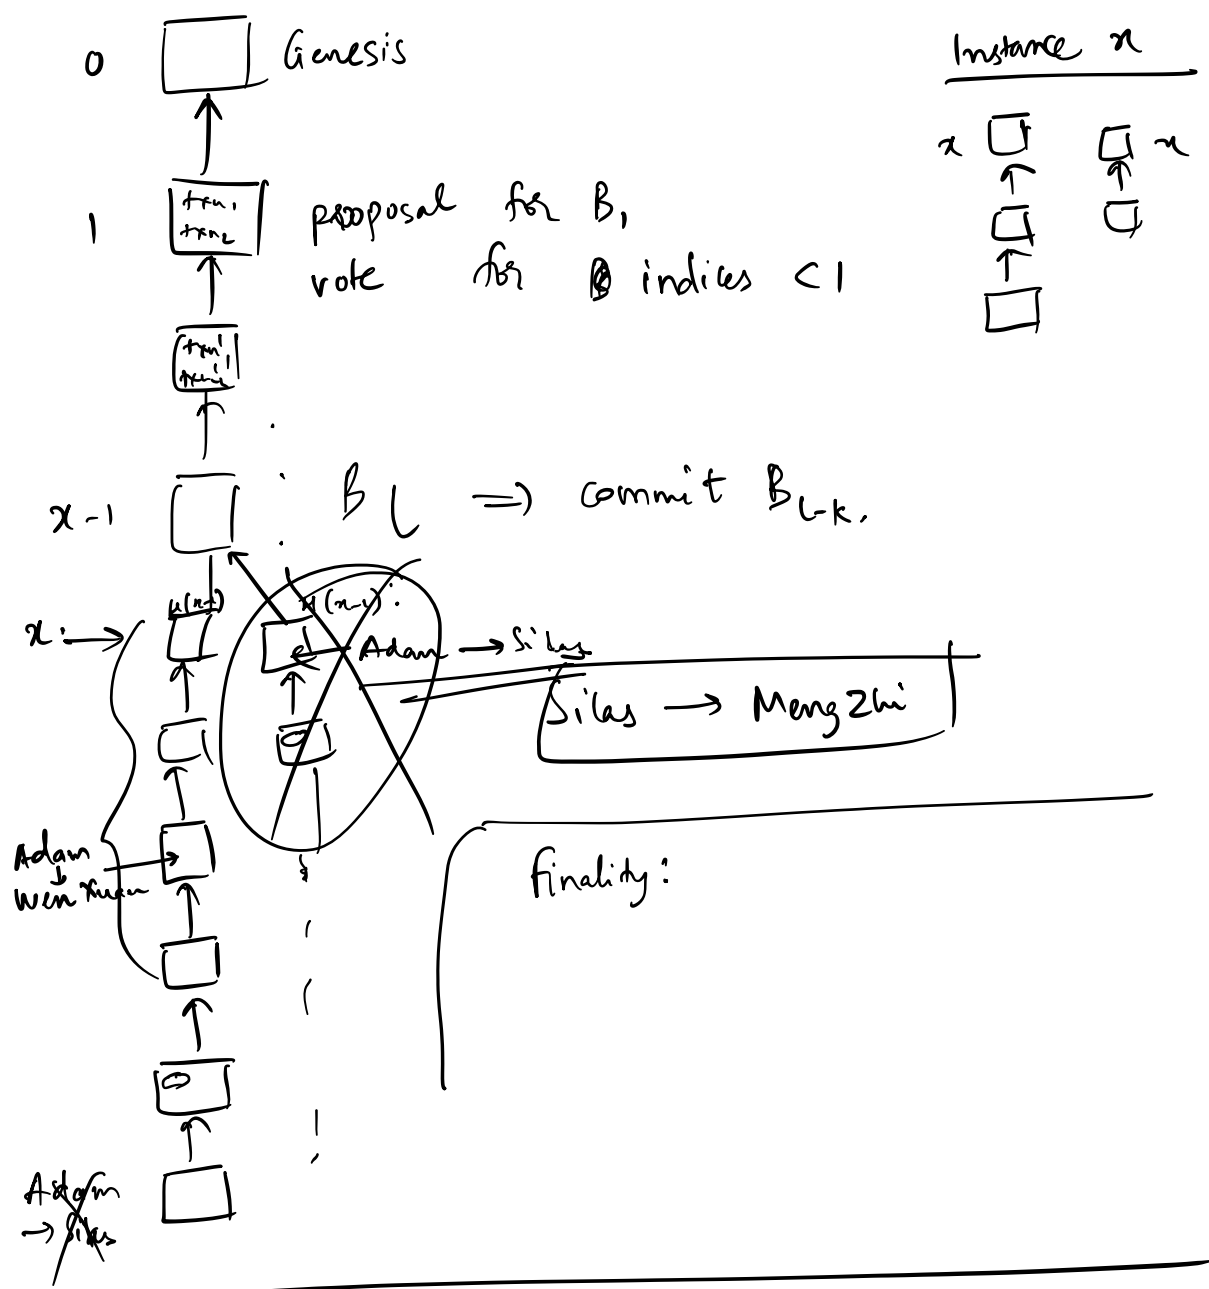 0 Genesis
Instance x
x x
1
txn1
txn2
proposal for B1
vote for indices < 1
txn1'
txn2'
x-1
B l => commit B l-k.
H(x-1) H(x-1)
x:
Adam → Silas
Silas → Mengzhi
Adam
↓
Wen Xuan
Finality:
Adam
→ Silas